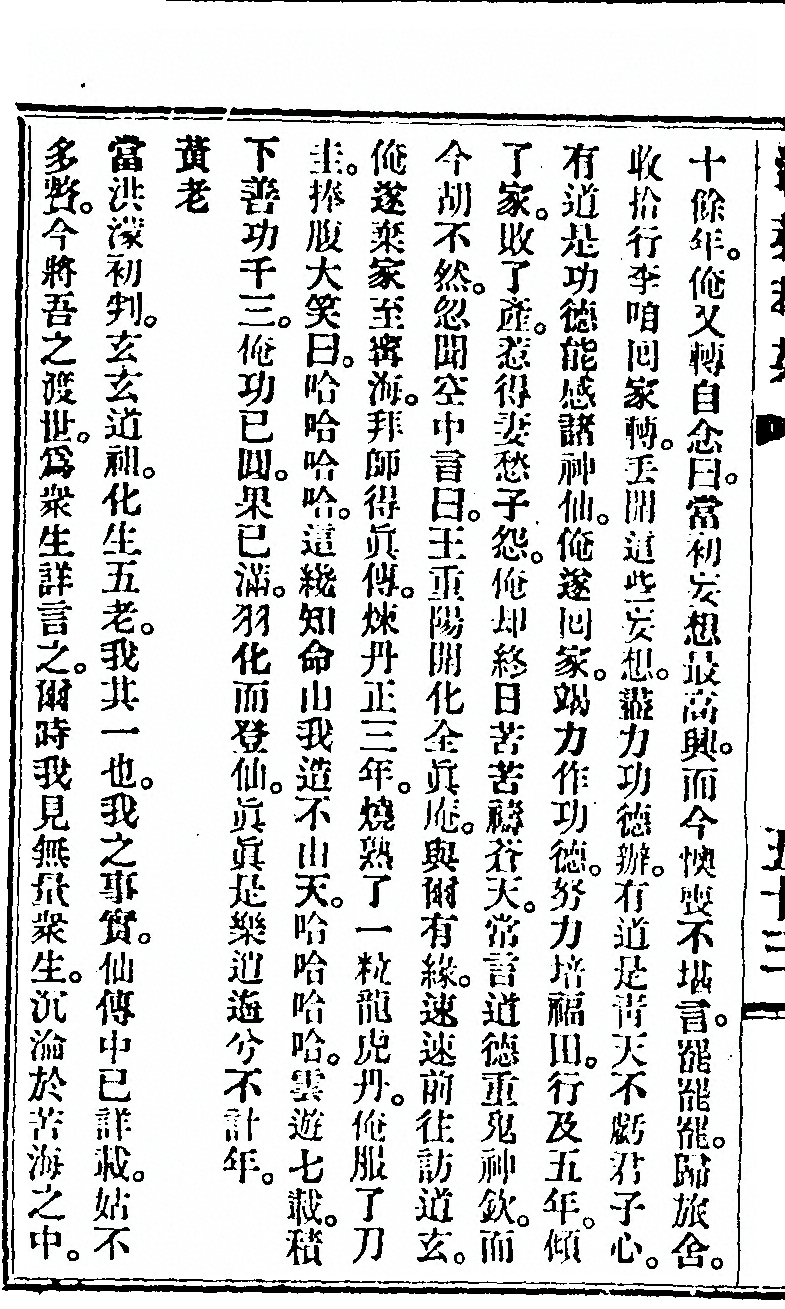 五十三
十餘年。俺又轉自念曰。當初妄想最高興。而今懊喪不堪言。罷罷罷。歸旅舍。
收拾行李咱回家轉。丟開這些妄想。盡力功德辦。有道是青天不虧君子心。
有道是功德能感諸神仙。俺遂回家。竭力作功德。努力培福田。行及五年。傾
了家。敗了產。惹得妻愁子怨。俺却終日苦苦禱蒼天。常言道德重鬼神欽。而
今胡不然。忽聞空中言曰。王重陽開化全眞庵。與爾有緣。速速前往訪道玄。
俺遂棄家至寗海。拜師得眞傳。煉丹正三年。燒熟了一粒龍虎丹。俺服了刀
圭。捧腹大笑曰。哈哈哈哈。這纔知命由我造不由天。哈哈哈哈。雲遊七載。積
下善功千三。俺功已圓。果已滿。羽化而登仙。眞眞是樂逍遙兮不計年。
黃老
當洪濛初判。玄玄道祖。化生五老。我其一也。我之事實。仙傳中已詳載。姑不
多贅。今將吾之渡世。爲衆生詳言之。爾時我見無量衆生。沉淪於苦海之中。